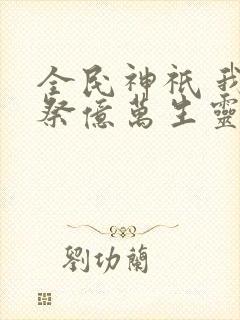 全民神祇 我
祭億萬生靈
劉功蘭